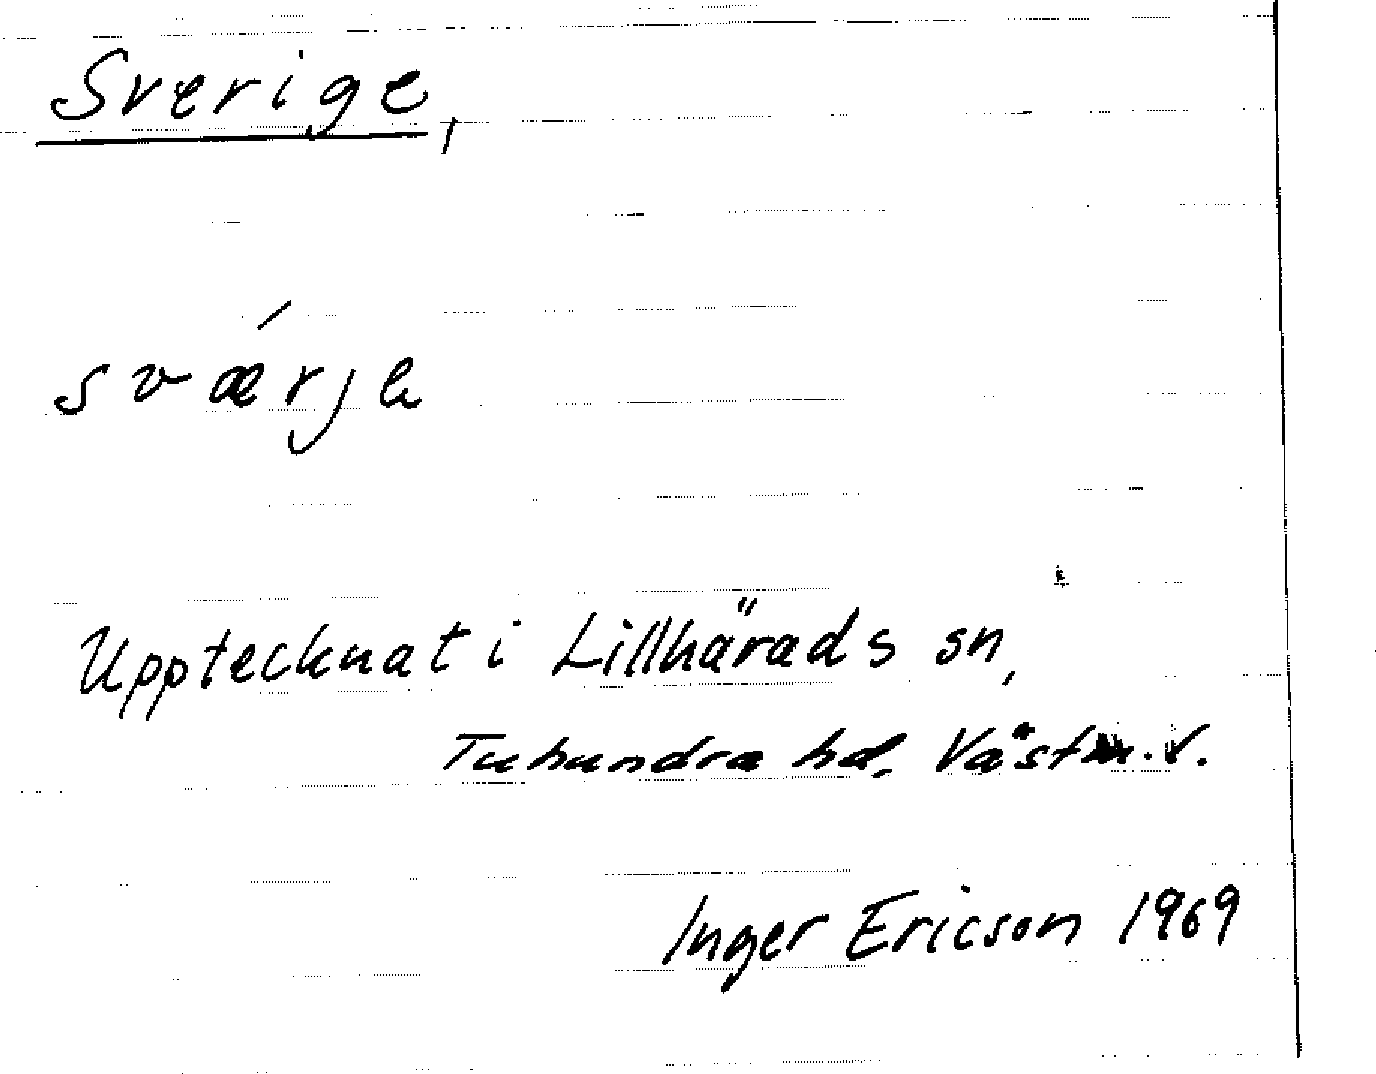 Sverige,
sværje
Upptecknat i Lillhärads sn,
Tuhundra hd, Västm. l.
Inger Ericson 1969